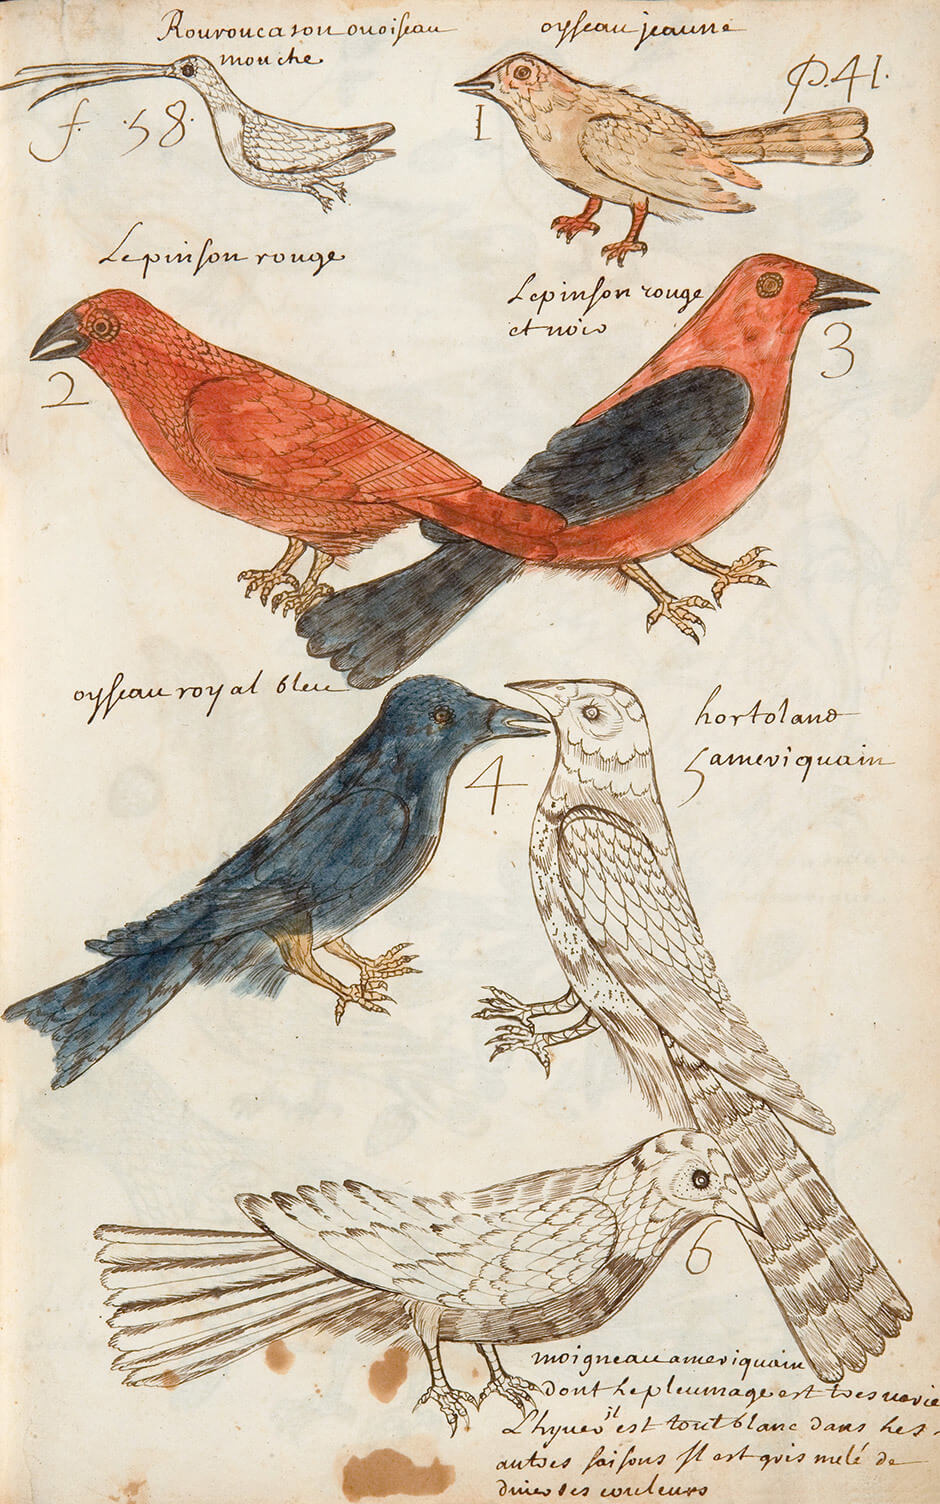 Rouroucason ouoiseau
mouche
oyseau jeaune
P. 41.
f. 58.
1
Le pinson rouge
Lepinson rouge
et noir
2
3
oyseau royal bleu
4
hortolane
5 ameriquain
6
moigneau ameriquain
dont Le pleumage est tres varie
Lhyuer il est tout blanc dans les
autres saisons Il est gris melé de
diuerses couleurs